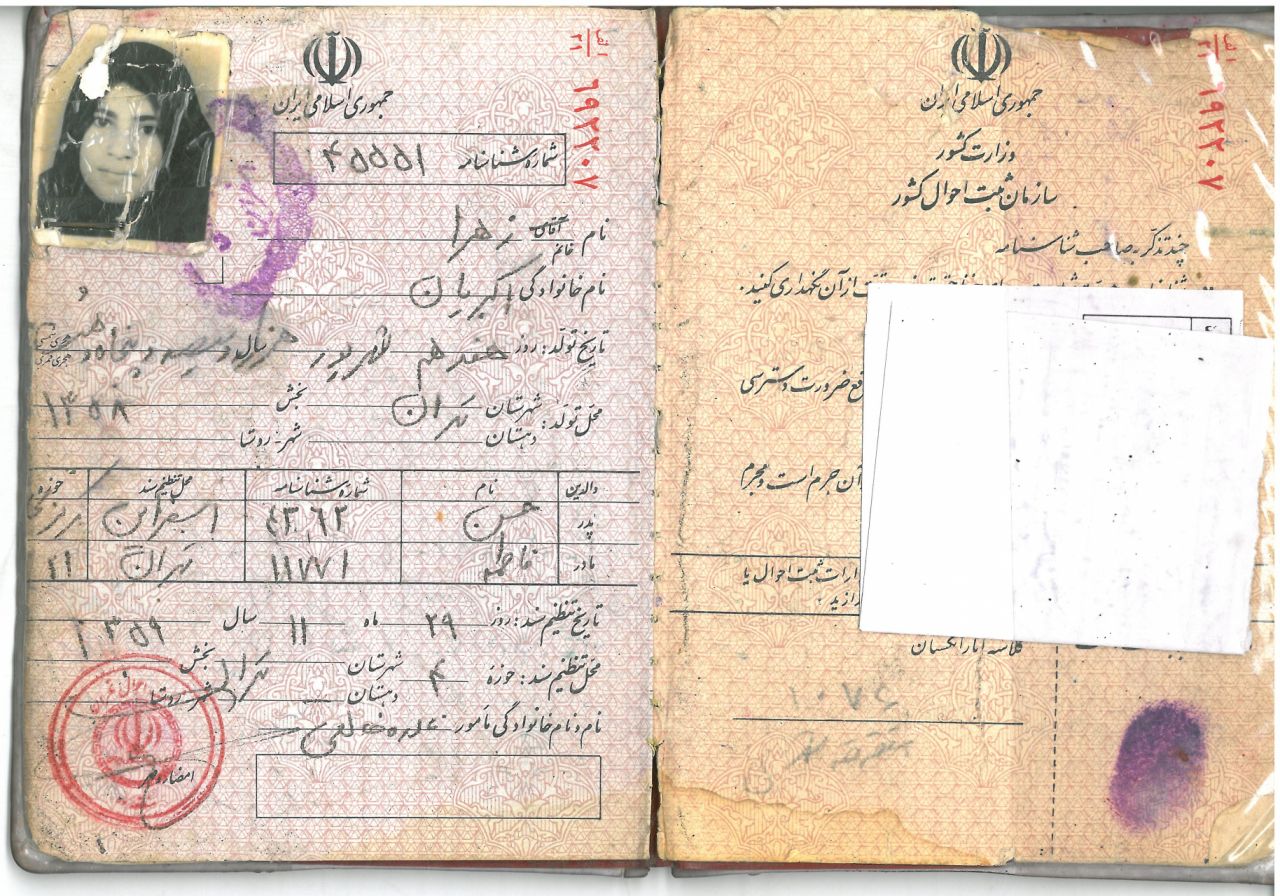 جمهوری اسلامی ایران
الف ۲۱
۶۹۲۲۰۷
شماره شناسنامه ۴۵۵۵۱
نام آقای خانم زهرا
نام خانوادگی اکبریان
تاریخ تولد: روز هفدهم شهریور هزار و سیصد و پنجاه و
هجری شمسی
هجری قمری
۱۳۵۸
محل تولد: شهرستان تهران بخش
دهستان شهر - روستا
والدین نام شماره شناسنامه محل تنظیم سند حوزه
پدر حسن ۴۳۶۲ اسفراین
مادر فاطمه ۱۱۷۷۱ تهران ۲۱
تاریخ تنظیم سند: روز ۲۹ ماه ۱۱ سال ۱۳۵۹
محل تنظیم سند: حوزه ۴ شهرستان تهران بخش
دهستان شهر - روستا
نام و نام خانوادگی مأمور
امضاء و مهر
جمهوری اسلامی ایران
الف ۲۱
۶۹۲۲۰۷
وزارت کشور
سازمان ثبت احوال کشور
چند تذکر به صاحب شناسنامه
از آن نگهداری کنید.
قع ضرورت دسترسی
آن جرم است و مجرم
ادارات ثبت احوال یا
کلاسه آثار انگشتان
۱۰۷۶